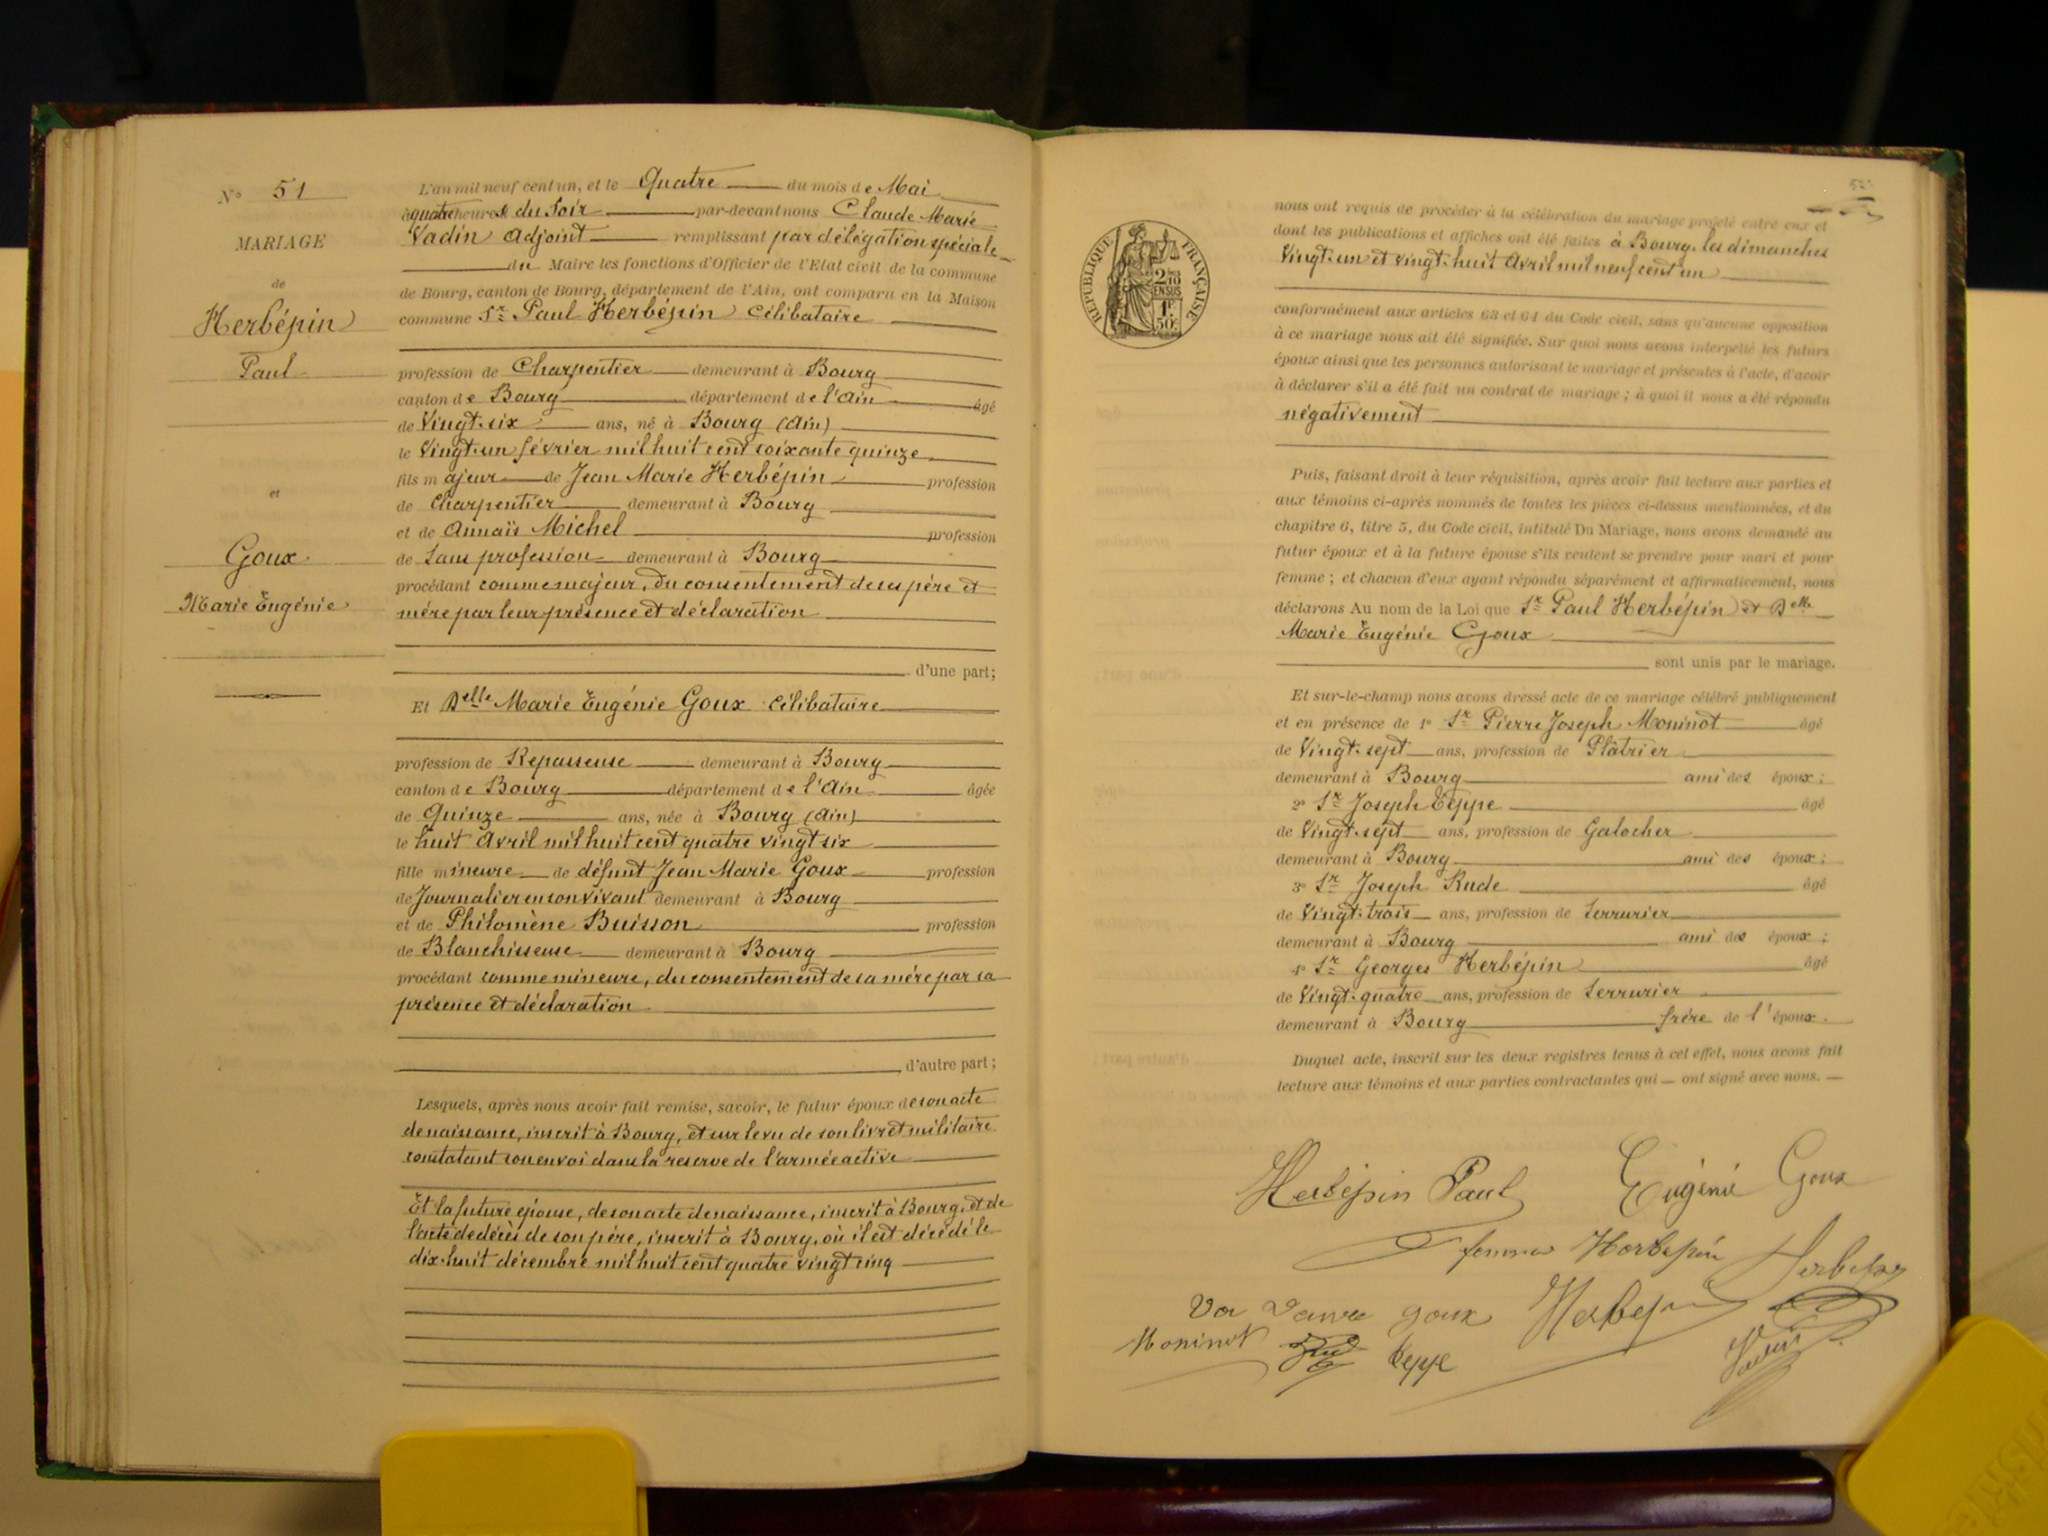 N° 51
MARIAGE
de
Herbépin
Paul
et
Goux
Marie Eugénie
L'an mil neuf cent un, et le Quatre du mois de Mai
à quatre heures du Soir par-devant nous Claude Marie
Vadin Adjoint remplissant par délégation spéciale
du Maire les fonctions d'Officier de l'Etat civil de la commune
de Bourg, canton de Bourg, département de l'Ain, ont comparu en la Maison
commune Sr Paul Herbépin Célibataire
profession de Charpentier demeurant à Bourg
canton de Bourg département de l'Ain âgé
de Vingt-six ans, né à Bourg (Ain)
le Vingt-un février mil huit cent soixante quinze
fils majeur de Jean Marie Herbépin profession
de Charpentier demeurant à Bourg
et de Annaïs Michel profession
de Sans profession demeurant à Bourg
procédant comme majeur, du consentement de ses père et
mère par leur présence et déclaration
d'une part;
Et Delle Marie Eugénie Goux Célibataire
profession de Repasseuse demeurant à Bourg
canton de Bourg département de l'Ain âgée
de Quinze ans, née à Bourg (Ain)
le huit Avril mil huit cent quatre vingt six
fille mineure de défunt Jean Marie Goux profession
de Journalier en son vivant demeurant à Bourg
et de Philomène Buisson profession
de Blanchisseuse demeurant à Bourg
procédant comme mineure, du consentement de sa mère par sa
présence et déclaration
d'autre part;
Lesquels, après nous avoir fait remise, savoir, le futur époux de son acte
de naissance, inscrit à Bourg, et sur le vu de son livret militaire
constatant son envoi dans la reserve de l'armée active
Et la future épouse, de son acte de naissance, inscrit à Bourg, et de
l'acte de décès de son père, inscrit à Bourg, où il est décédé le
dix-huit décembre mil huit cent quatre vingt cinq
52
RÉPUBLIQUE FRANÇAISE
2/10
EN SUS
1F
50c
nous ont requis de procéder à la célébration du mariage projeté entre eux et
dont les publications et affiches ont été faites à Bourg, les dimanches
Vingt-un et vingt-huit Avril mil neuf cent un
conformément aux articles 63 et 64 du Code civil, sans qu'aucune opposition
à ce mariage nous ait été signifiée. Sur quoi nous avons interpellé les futurs
époux ainsi que les personnes autorisant le mariage et présentes à l'acte, d'avoir
à déclarer s'il a été fait un contrat de mariage; à quoi il nous a été répondu
négativement
Puis, faisant droit à leur réquisition, après avoir fait lecture aux parties et
aux témoins ci-après nommés de toutes les pièces ci-dessus mentionnées, et du
chapitre 6, titre 5, du Code civil, intitulé Du Mariage, nous avons demandé au
futur époux et à la future épouse s'ils veulent se prendre pour mari et pour
femme; et chacun d'eux ayant répondu séparément et affirmativement, nous
déclarons Au nom de la Loi que Sr Paul Herbépin et Delle
Marie Eugénie Goux
sont unis par le mariage.
Et sur-le-champ nous avons dressé acte de ce mariage célébré publiquement
et en présence de 1° Sr Pierre Joseph Moninot âgé
de Vingt-sept ans, profession de Plâtrier
demeurant à Bourg ami des époux;
2° Sr Joseph Teppe âgé
de Vingt-sept ans, profession de Galocher
demeurant à Bourg ami des époux;
3° Sr Joseph Rude âgé
de Vingt-trois ans, profession de Serrurier
demeurant à Bourg ami des époux;
4° Sr Georges Herbépin âgé
de Vingt-quatre ans, profession de Serrurier
demeurant à Bourg frère de l'époux.
Duquel acte, inscrit sur les deux registres tenus à cet effet, nous avons fait
lecture aux témoins et aux parties contractantes qui ont signé avec nous.
Herbépin Paul Eugénie Goux
femme Herbepin Herbepin
goux Herbepin
Moninot Rude Teppe Vadin